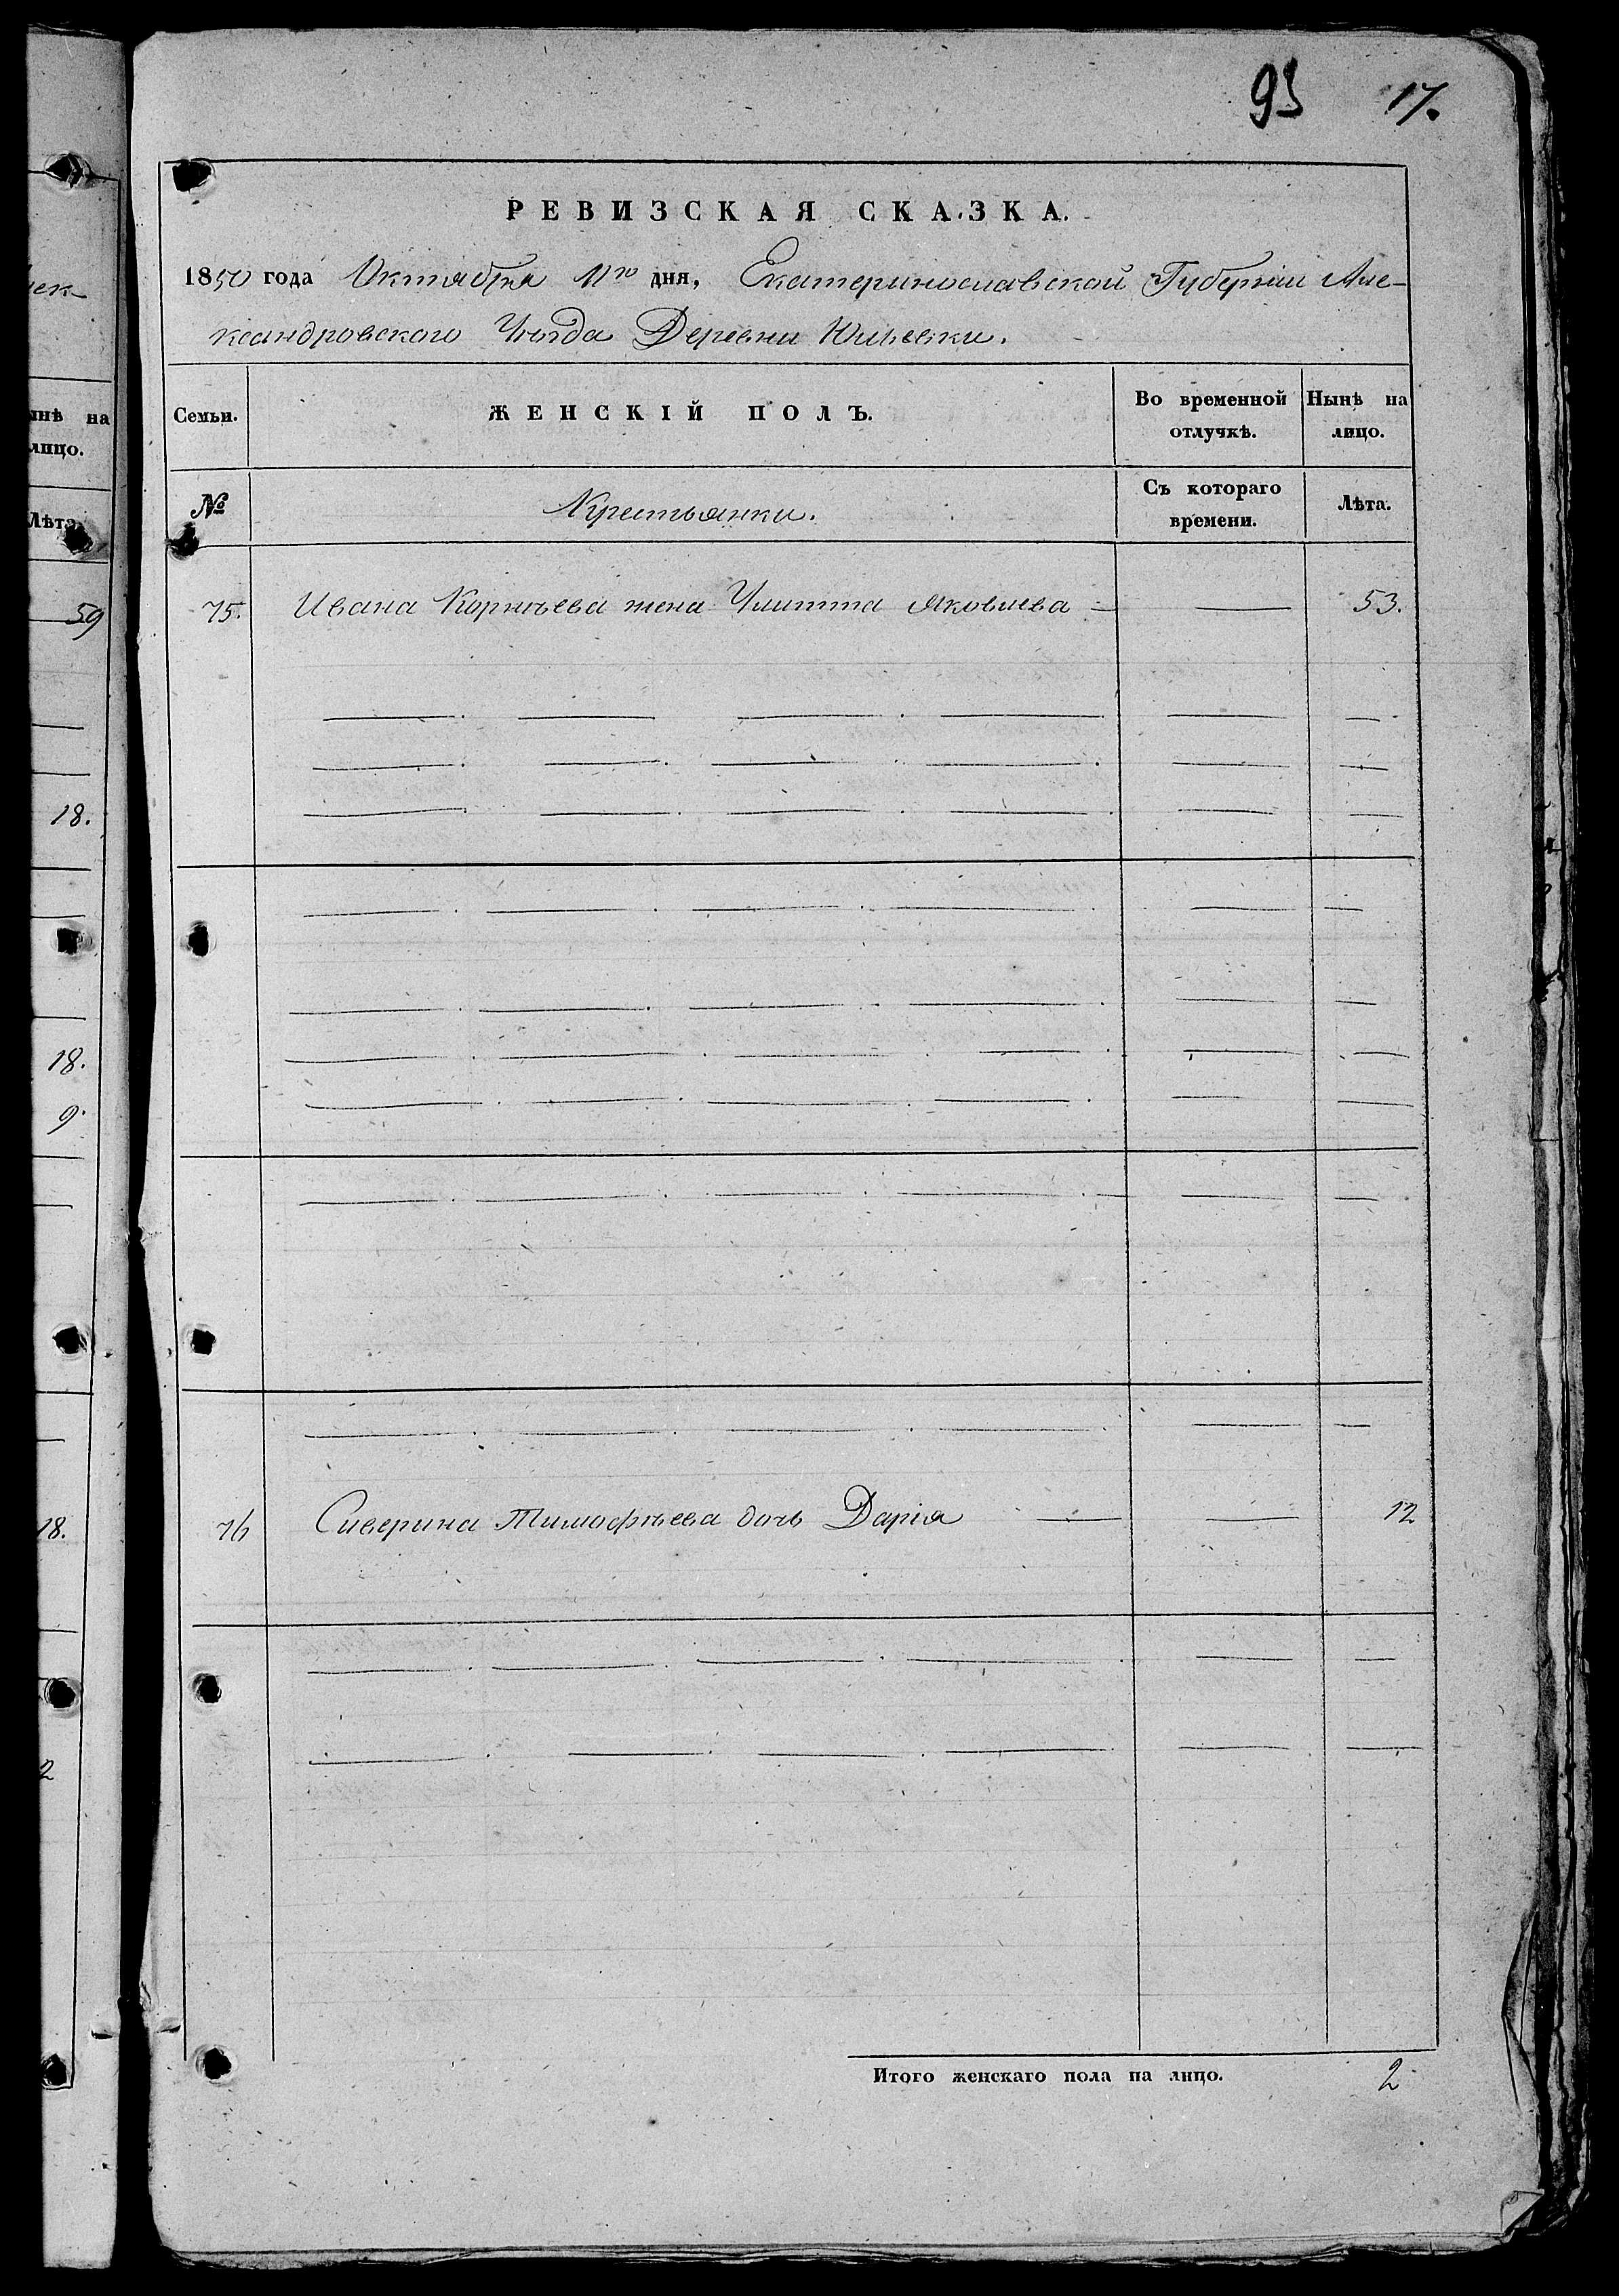 93 17.
РЕВИЗСКАЯ СКАЗКА.
1850 года Октября 11го дня, Екатеринославской Губерніи Але-
ксандровского Уѣзда Деревни Юльевки.
Семьи. ЖЕНСКІЙ ПОЛЪ. Во временной отлучкѣ. Нынѣ на лицо.
№ Крестьянки. Съ котораго времени. Лѣта.
75. Ивана Корнѣева жена Улитта Яковлева — 53.
76 Сиверина Тимофѣева дочь Дарія — 12
Итого женскаго пола на лицо. 2
лек-
ынѣ на
лицо.
Лѣта.
59
18.
18.
9.
18.
2